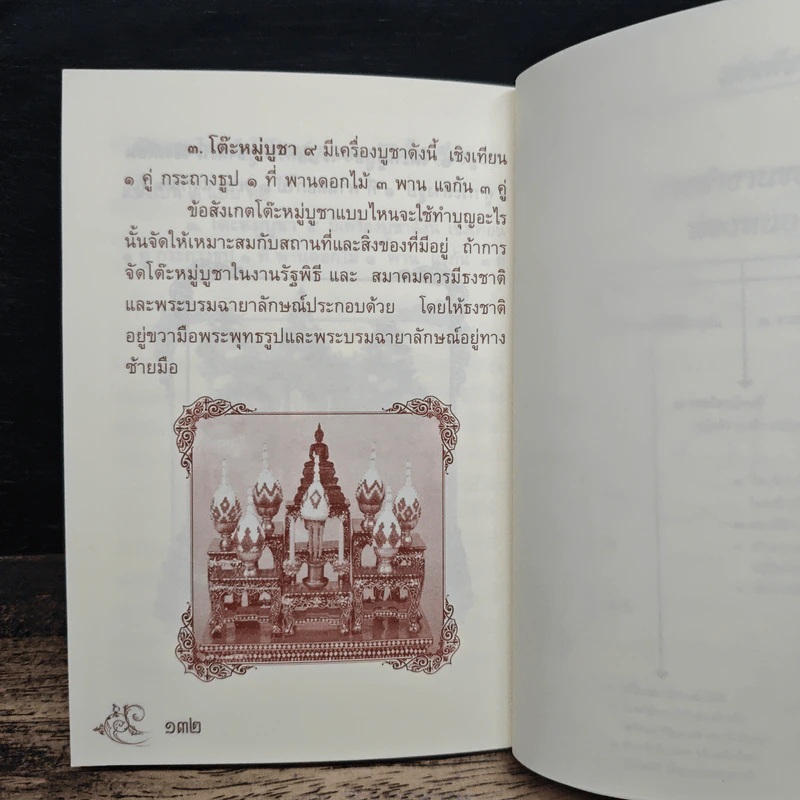 ๓. โต๊ะหมู่บูชา ๙ มีเครื่องบูชาดังนี้ เชิงเทียน
๑ คู่ กระถางธูป ๑ ที่ พานดอกไม้ ๓ พาน แจกัน ๓ คู่
ข้อสังเกตโต๊ะหมู่บูชาแบบไหนจะใช้ทำบุญอะไร
นั้นจัดให้เหมาะสมกับสถานที่และสิ่งของที่มีอยู่ ถ้าการ
จัดโต๊ะหมู่บูชาในงานรัฐพิธี และ สมาคมควรมีธงชาติ
และพระบรมฉายาลักษณ์ประกอบด้วย โดยให้ธงชาติ
อยู่ขวามือพระพุทธรูปและพระบรมฉายาลักษณ์อยู่ทาง
ซ้ายมือ
๑๓๒